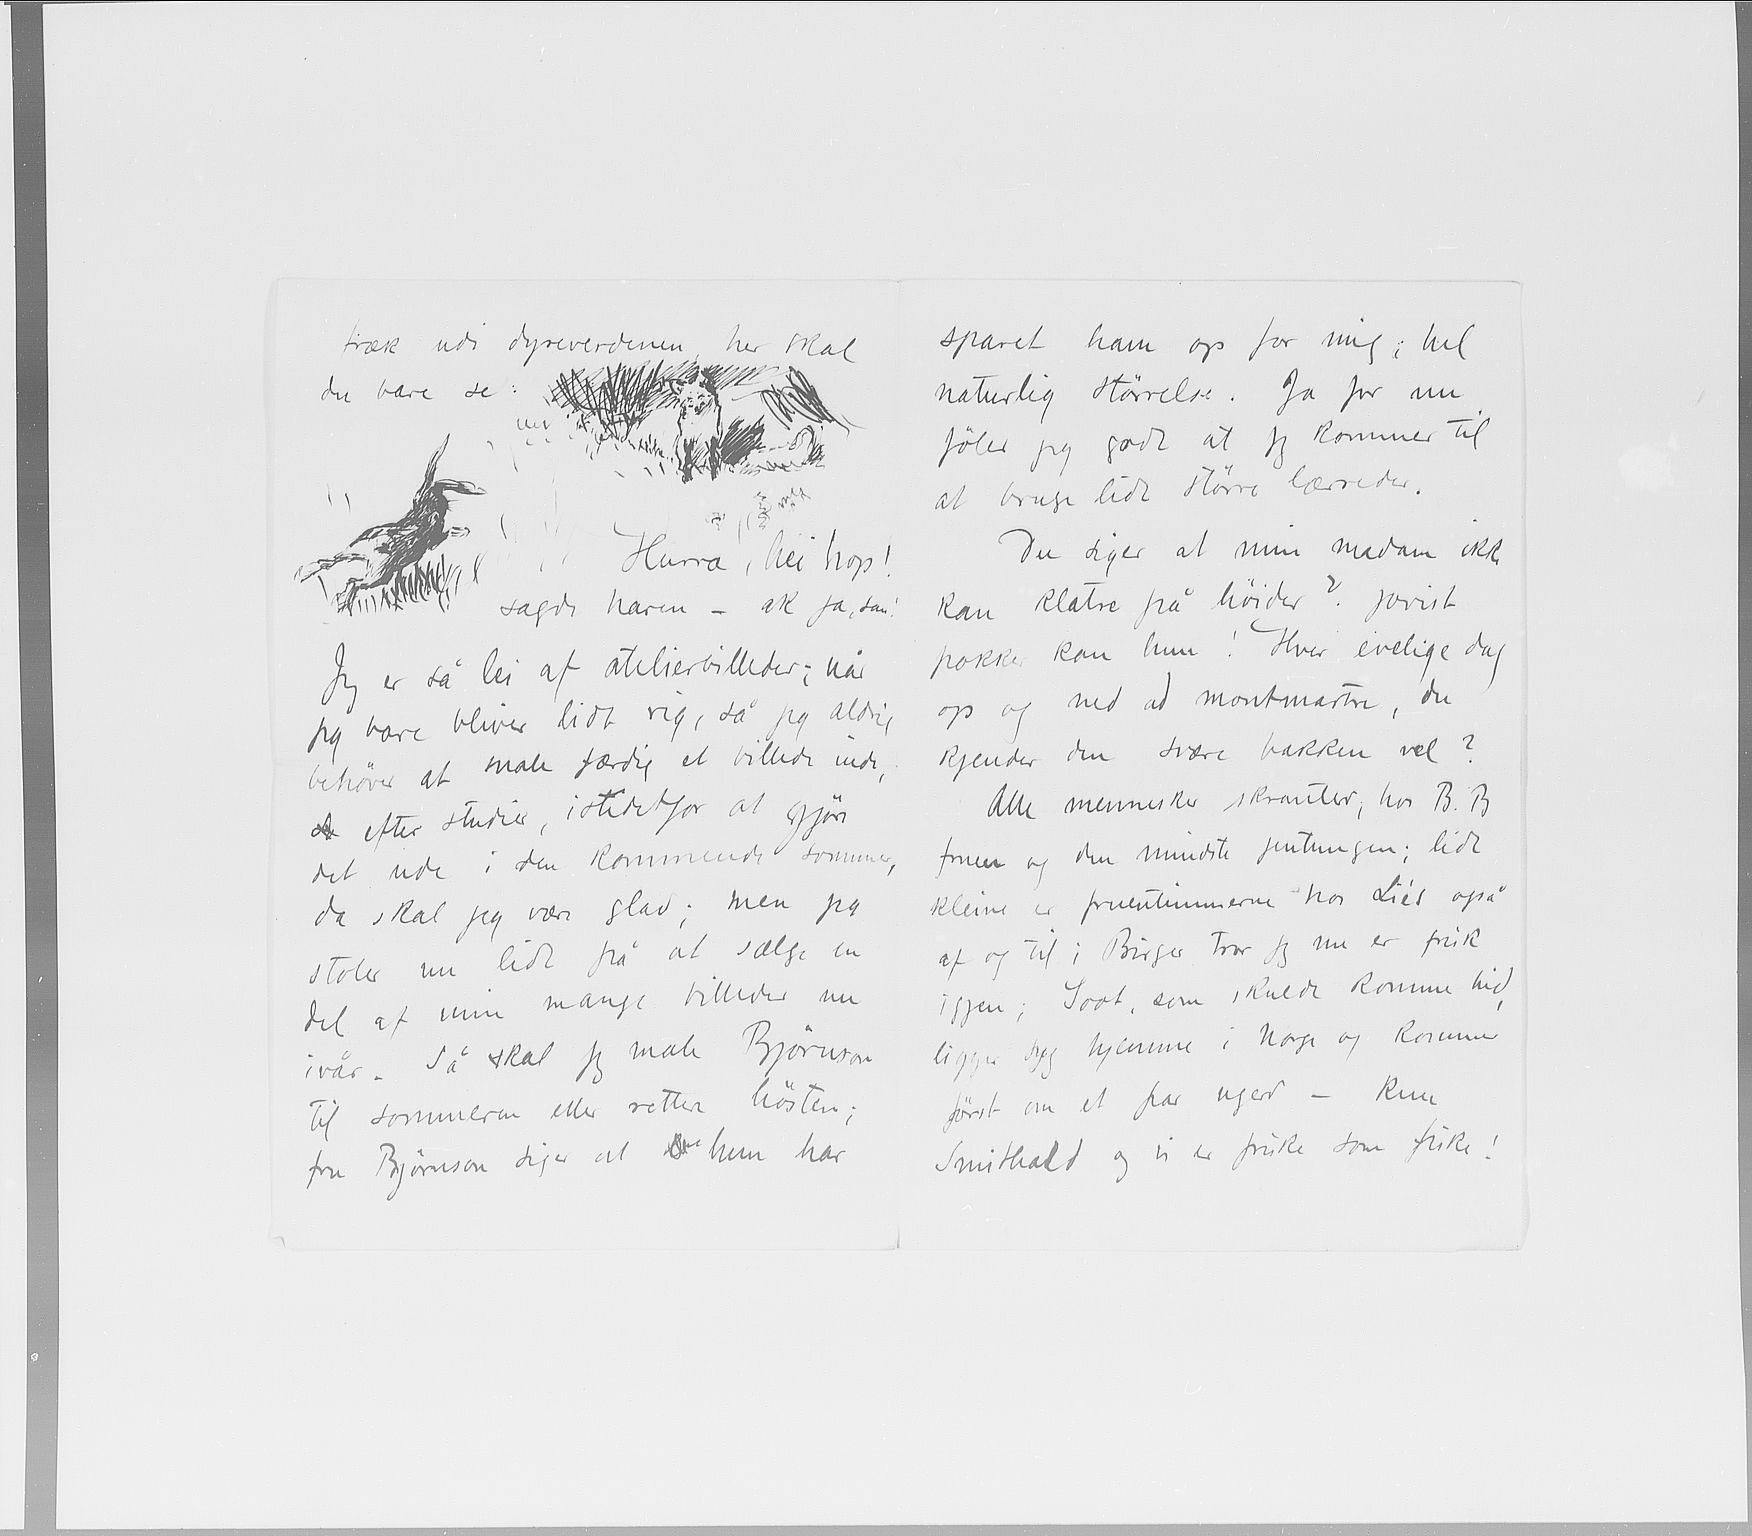 træk udi dyreverdenen, her skal
du bare se:
Hurra, hei hop!
sagde haren – ak ja, san!
Jeg er så lei af atelierbilleder; når
jeg bare bliver lidt rig, så jeg aldrig
behöver at male færdig et billede inde,
efter studier, istedetfor at gjöre
det ude i den kommende sommer,
da skal jeg være glad; men jeg
stoler nu lidt på at sælge en
del af mine mange billeder nu
ivår. Så skal jeg male Björnson
til sommeren eller rettere hösten;
fru Björnson siger at hun har
sparet ham op for mig; hel
naturlig störrelse. Ja for nu
föler jeg godt at jeg kommer til
at bruge lidt större lærreder.
Du siger at min madam ikke
kan klatre på höider? jovist
pokker kan hun! Hver evelige dag
op og ned ad montmartre, du
kjender den svære bakken vel?
Alle mennesker skranter, hos B. B
fruen og den mindste jentungen; lidt
kleine er fruentimmerne hos Liés også
af og til; Birger tror jeg nu er frisk
igjen; Soot, som skulde komme hid,
ligger syg hjemme i Norge og kommer
först om et par uger – Kun
Smithald og vi er friske som fiske!